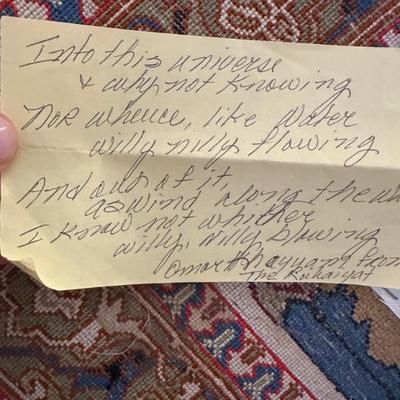 Into this universe
& why not knowing
Nor whence, like water
willy nilly flowing
And out of it
as wind along the wa
I know not whither
willy, nilly blowing
Omar Khayyam from
The Rubaiyat